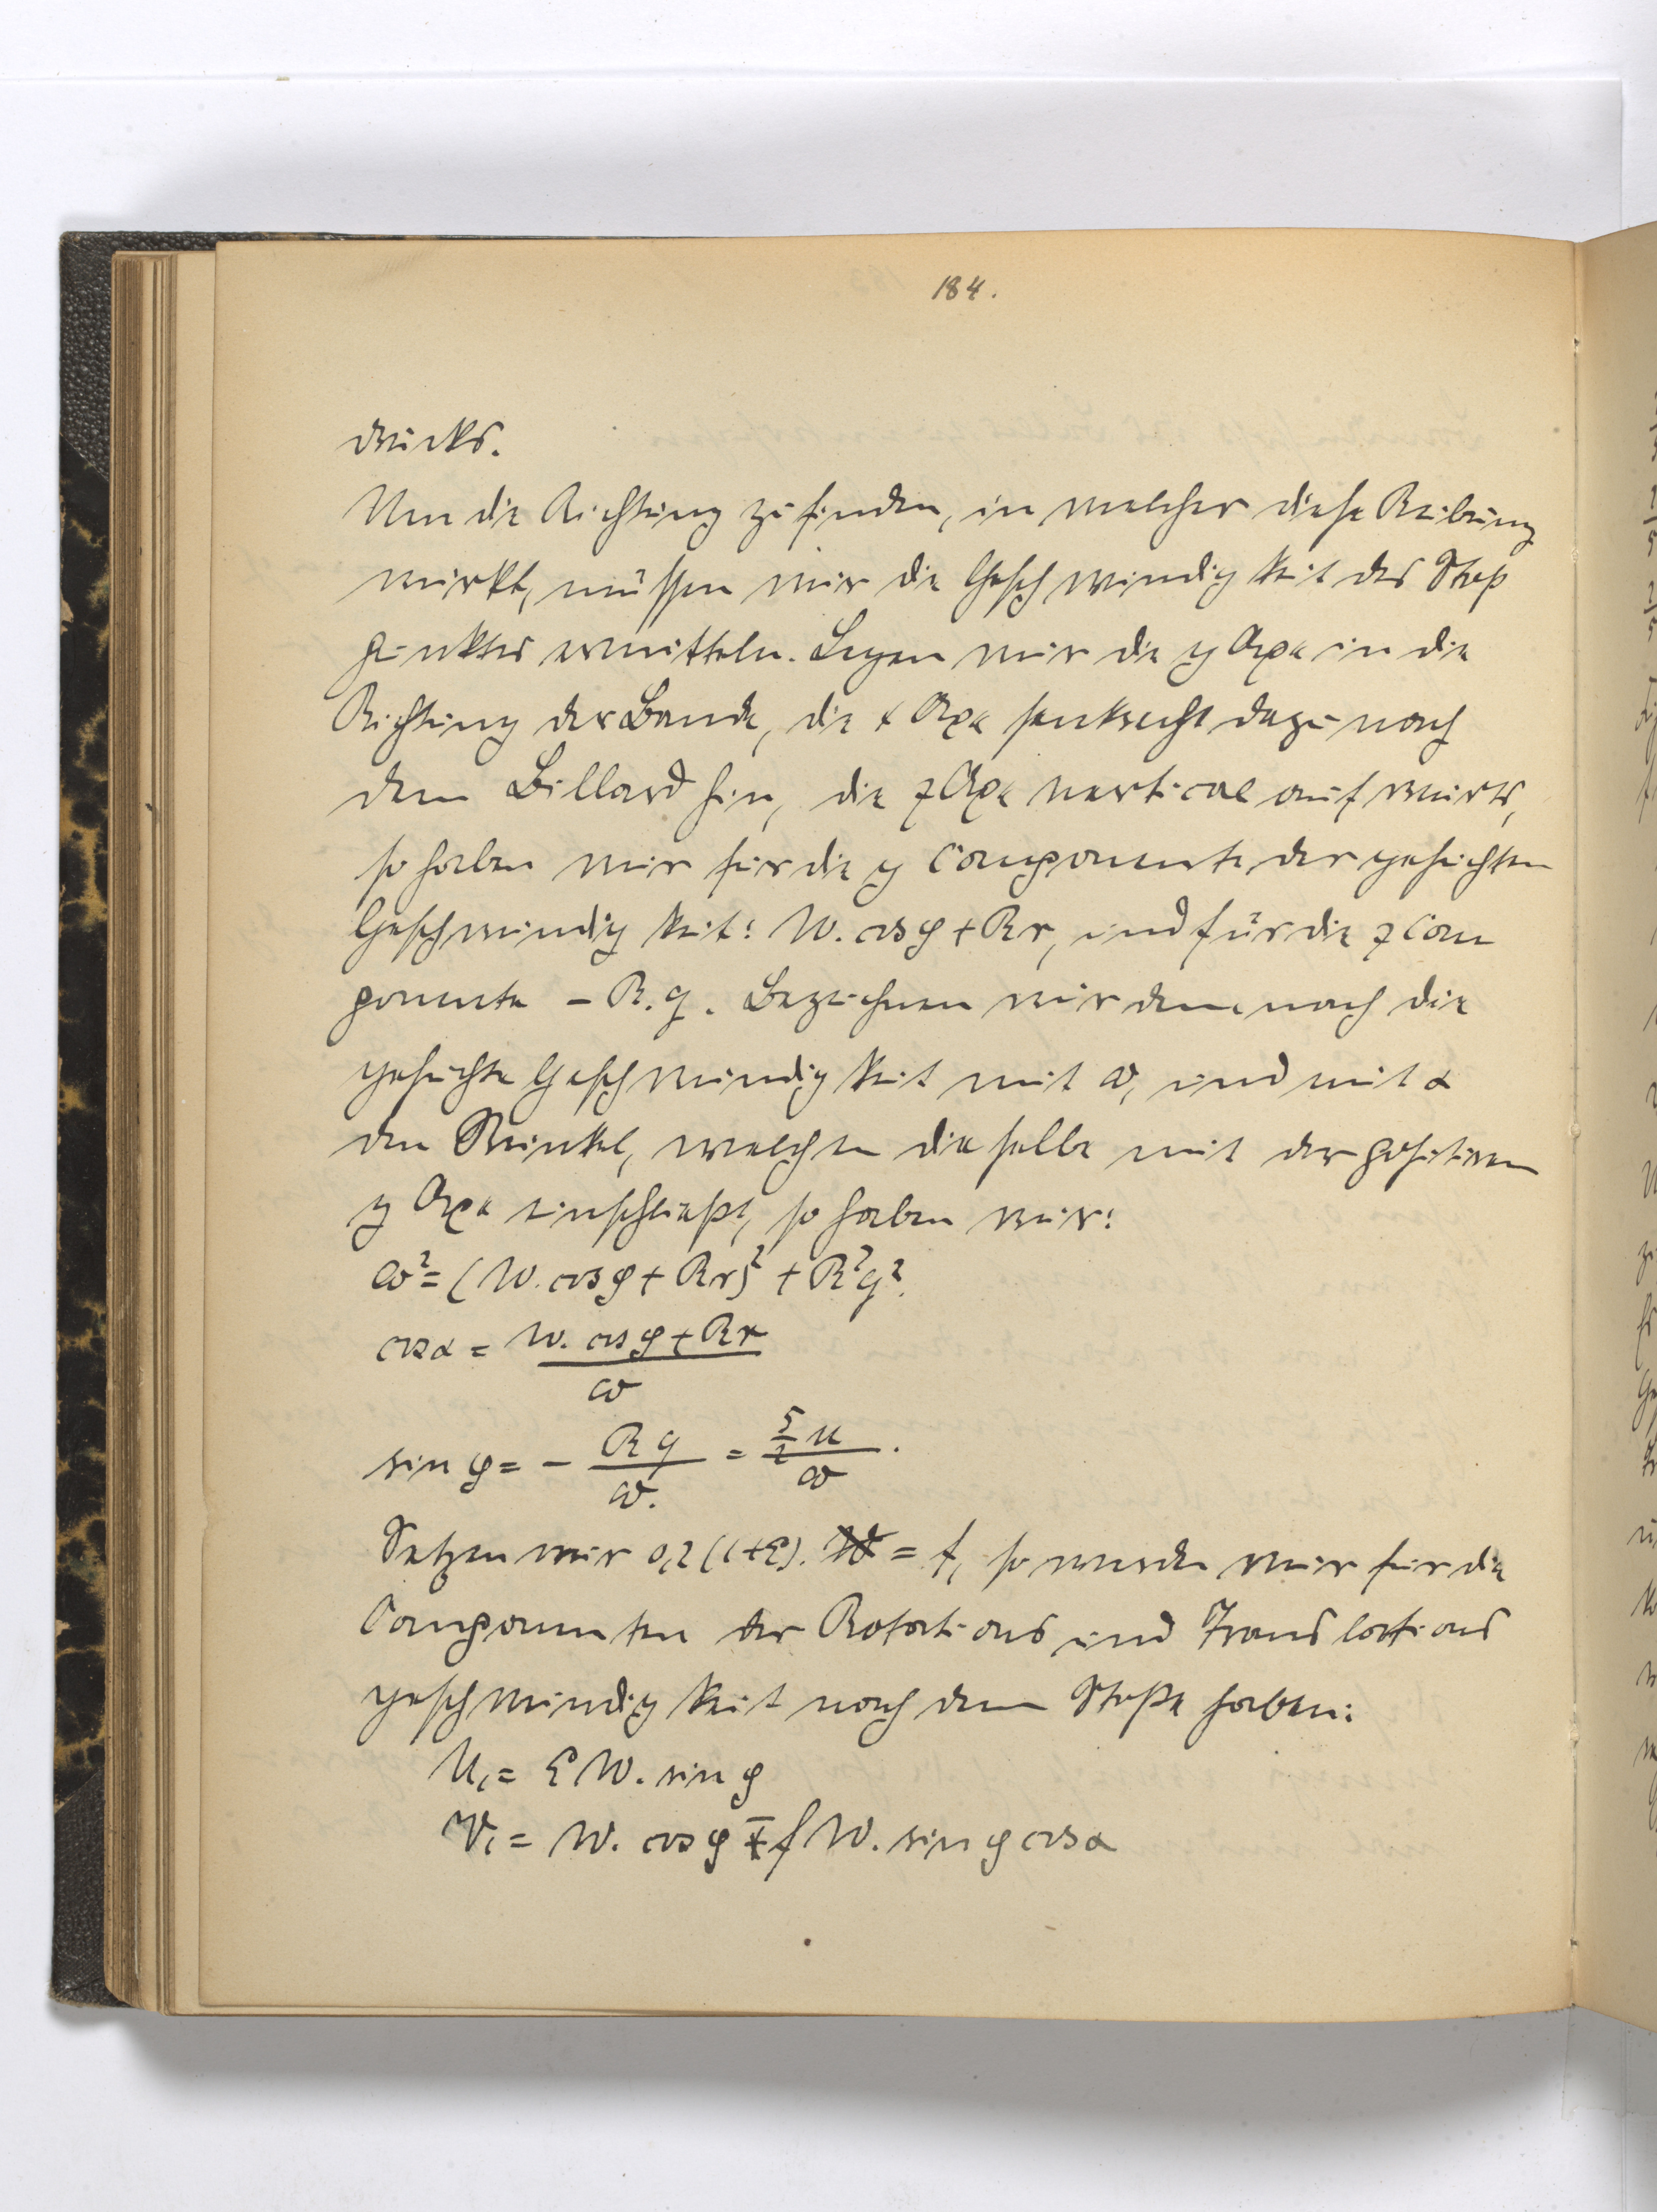 184.
drucks.
Um die Richtung zu finden, in welcher diese Reibung
wirkt, müssen wir die Geschwindigkeit des Stoß
punktes ermitteln. Legen wir die y Axe in die
Richtung der Bande, die x Axe senkrecht dazu nach
dem Billard hin, die z Axe vertical aufwärts,
so haben wir für die y Componente der gesuchten
Geschwindigkeit: W. cos φ + Rr, und für die z Com
ponente - R.q. Bezeichnen wir demnach die
gesuchte Geschwindigkeit mit ω, und mit α
den Winkel, welchen dieselbe mit der positiven
y Axe einschließt, so haben wir:
ω² = (W. cos φ + Rr)² + R²q².
cos α = W. cos φ + Rr / ω
sin φ = - Rq / ω. = 5/2 u / ω.
Setzen wir 0,2 (1+ε). = f, so werden wir für die
Componenten der Rotations und Translations
geschwindigkeit nach dem Stoße haben:
U₁ = ε W. sin φ
V₁ = W. cos φ ∓ f W. sin φ cos α